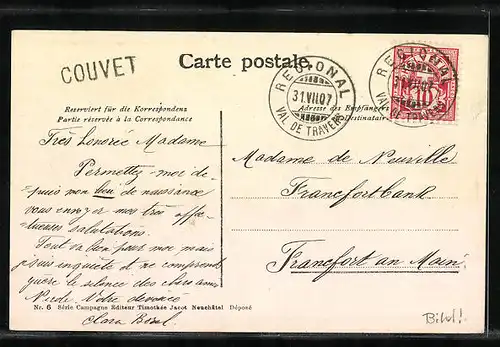 COUVET
Carte postale.
REGIONAL
31.VII.07
VAL DE TRAVERS
REGIONAL
31.VII.07
VAL DE TRAVERS
10
Reserviert für die Korrespondenz
Partie réservée à la Correspondance
Adresse des Empfängers
Destinataire
Très honorée Madame
Permettez-moi de-
puis mon lieu de naissance
vous envoyer mes très affec-
tueuses salutations.
Tout va bien pour moi mais
je suis inquiète et ne comprend
guère le silence des chers amis
Votre dévouée
Clara
Madame de Neuville
Francfortbank
Francfort am Main.
Nr. 6 Série Campagne Editeur Timothée Jacot Neuchâtel Déposé
Bild!